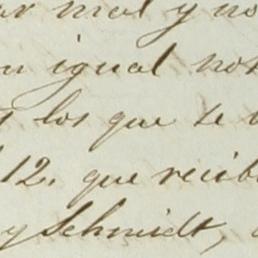 mal y no
igual not
los que te
12. que recib
y Schmidt,